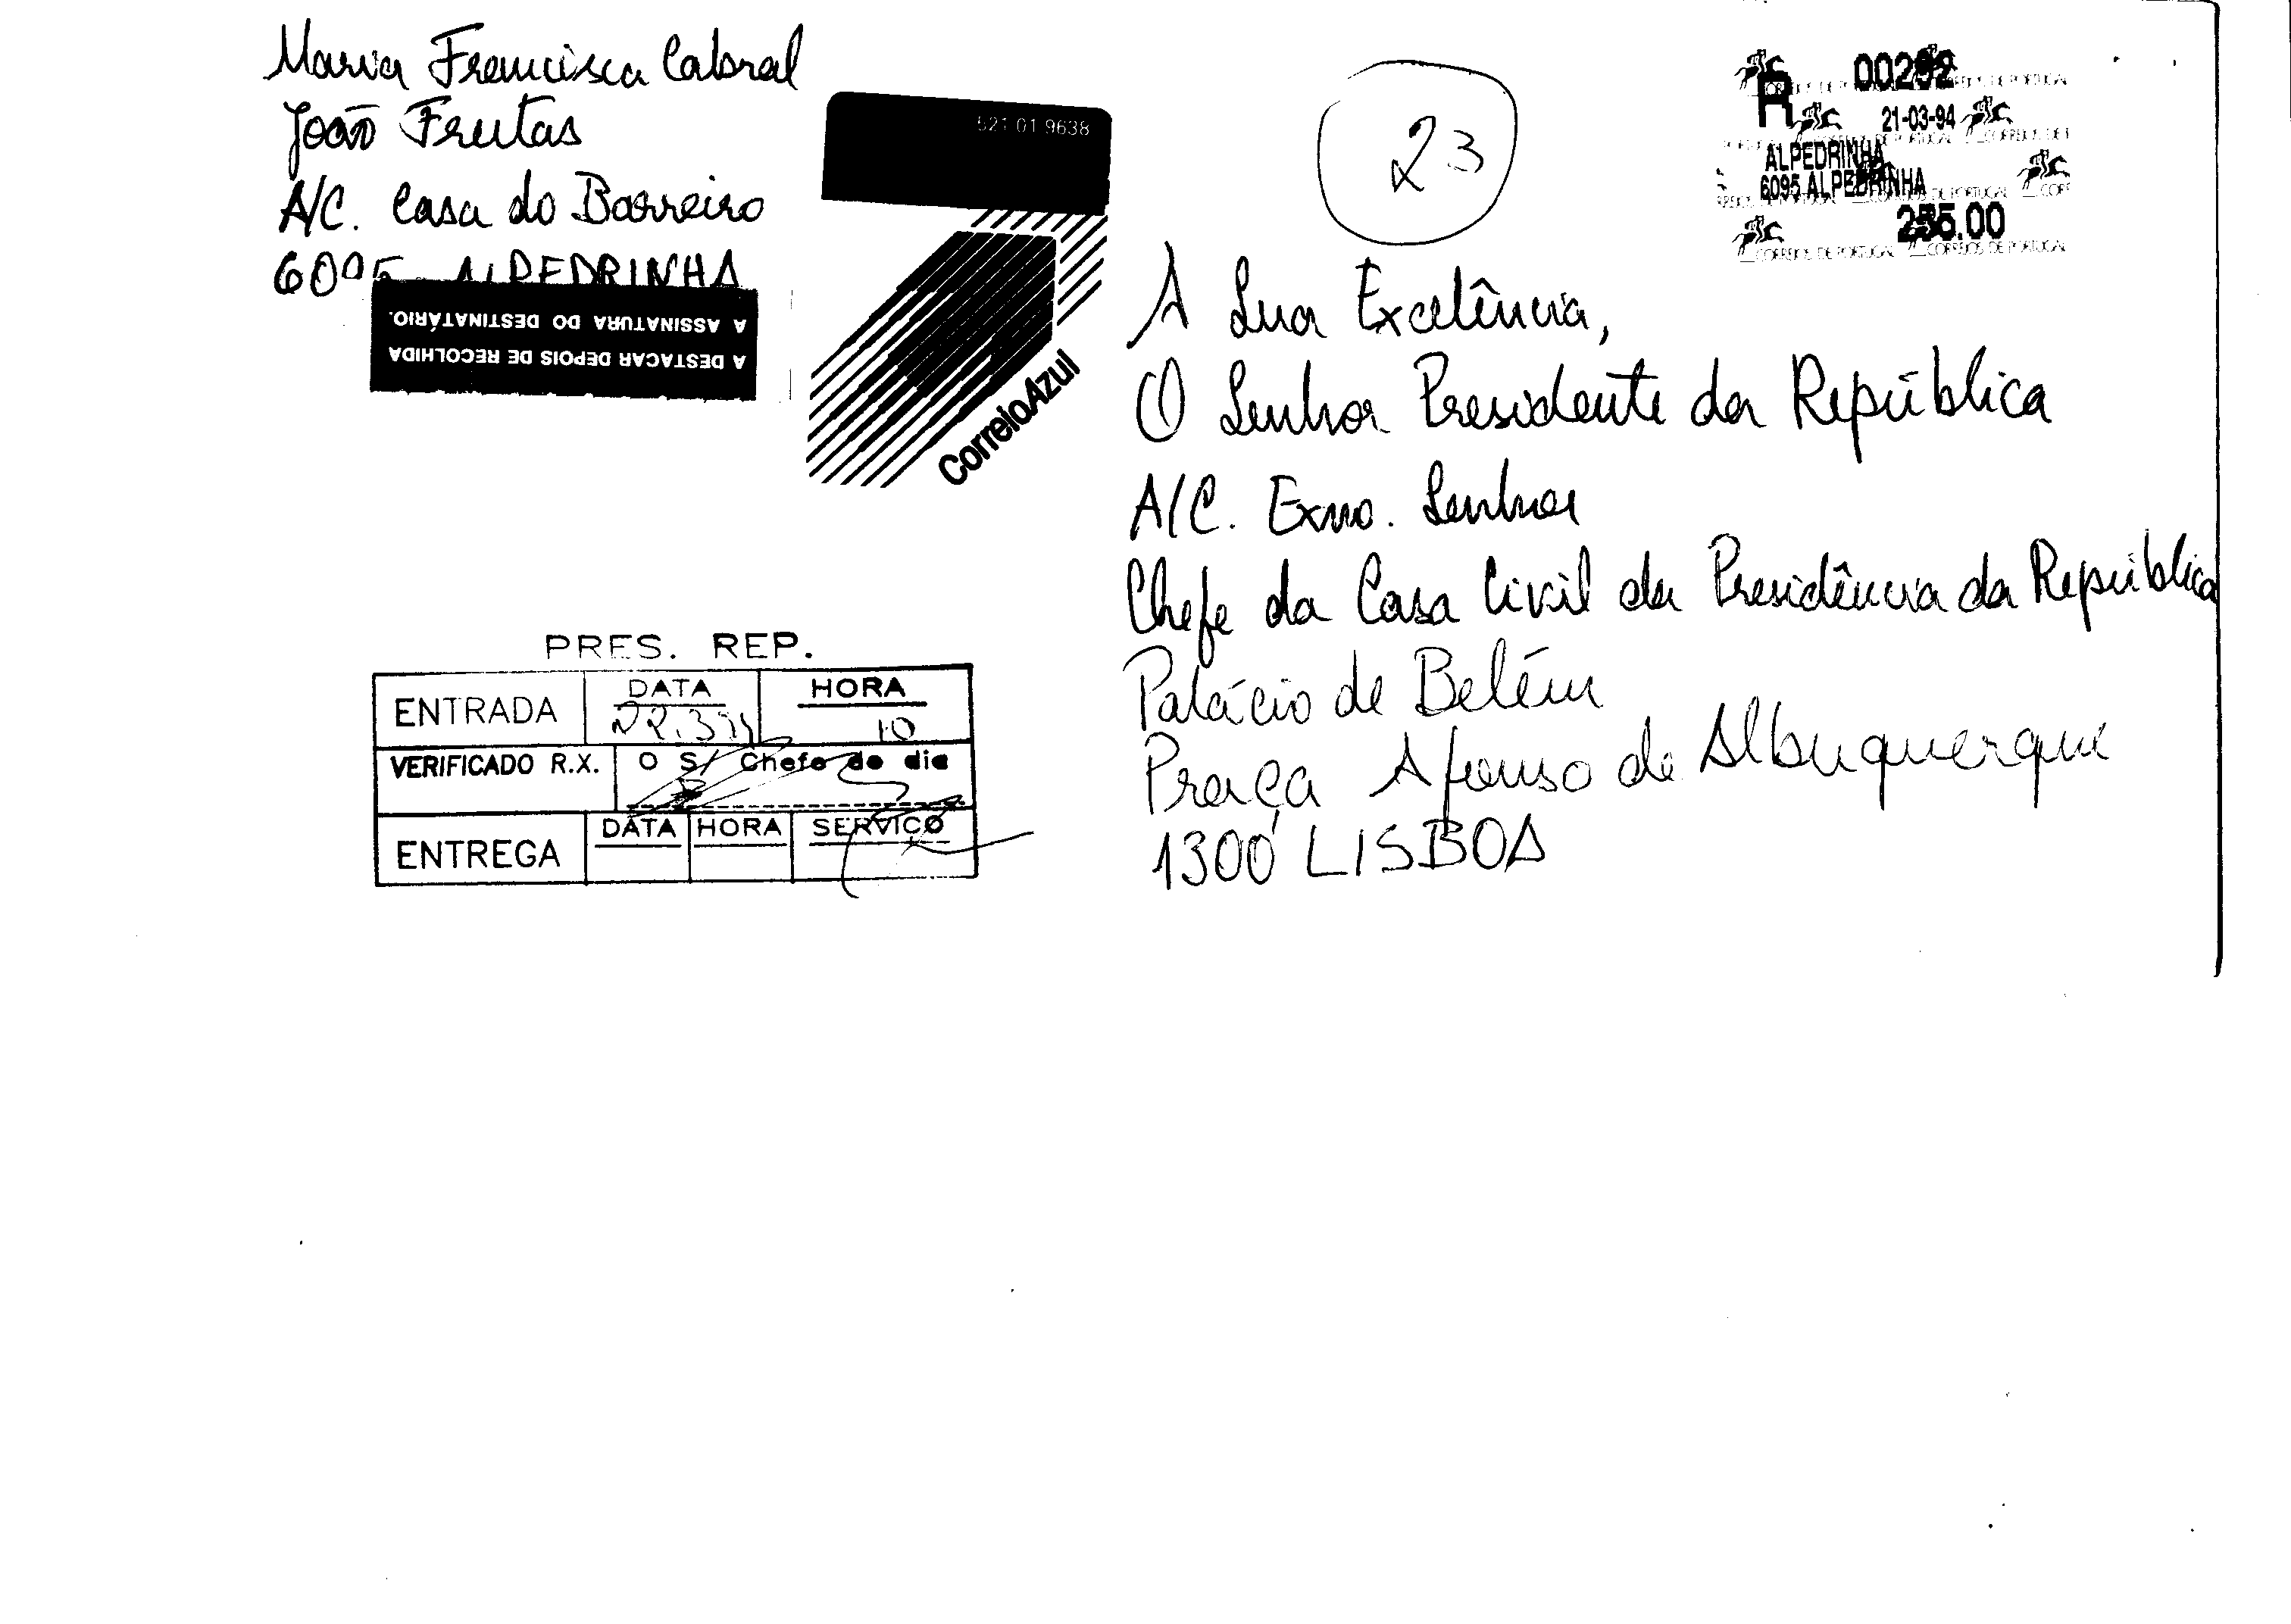 Maria Francisca Cabral
João Freitas
A/C. Casa do Barreiro
6095 - ALPEDRINHA
A DESTACAR DEPOIS DE RECOLHIDA
A ASSINATURA DO DESTINATÁRIO.
521 01 9638
CorreioAzul
23
R 00292
21-03-94
ALPEDRINHA
6095 ALPEDRINHA
255.00
CORREIOS DE PORTUGAL CORREIOS DE PORTUGAL
À Sua Excelência,
O Senhor Presidente da República
A/C. Exmo. Senhor
Chefe da Casa Civil da Presidência da República
Palácio de Belém
Praça Afonso de Albuquerque
1300 LISBOA
PRES. REP.
ENTRADA DATA HORA
22.3.94 10
VERIFICADO R.X. O S/ Chefe do dia
ENTREGA DATA HORA SERVIÇO